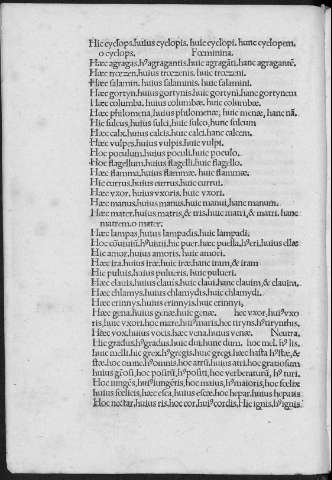 Hic cyclops, huius cyclopis, huic cyclopi, hunc cyclopem,
o cyclops. Fœminina.
Hæc agragas, hꝰ agragantis, huic agragāti, hanc agragantē,
Hæc trœzen, huius trœzenis, huic trœzeni.
Hæc salamin, huius salaminis, huic salamini.
Hæc gortyn, huius gortynis, huic gortyni, hanc gortynem
Hæc columba, huius columbæ, huic columbæ.
Hæc philomena, huius philomenæ, huic menæ, hanc nā,
Hic sulcus, huius sulci, huic sulco, hunc sulcum
Hæc calx, huius calcis, huic calci, hanc calcem,
Hæc vulpes, huius vulpis, huic vulpi.
Hoc poculum, huius poculi, huic poculo,
Hoc flagellum, huius flagelli, huic flagello,
Hæc flamma, huius flammæ, huic flammæ.
Hic currus, huius currus, huic currui.
Hæc vxor, huius vxoris, huic vxori.
Hæc manus, huius manus, huic manui, hanc manum.
Hæc mater, huius matris, & tris, huic matri, & matri, hanc
matrem, o mater;
Hæc lampas, huius lampadis, huic lampadi,
Hoc hic puer, hæc puella, hꝰ eri, huius ellæ
Hic amor, huius amoris, huic amori.
Hæc ira, huius iræ, huic iræ, hanc iram, & iram
Hic puluis, huius pulueris, huic pulueri.
Hæc clauis, huius clauis, huic claui, hanc clauim, & clauim,
Hæc chlamys, huius chlamydis, huic chlamydi.
Hæc erinnys, huius erinnyis, huic erinnyi,
Hæc gena, huius genæ, huic genæ. hec vxor, huiꝰ vxo
ris, huic vxori, hoc mare, huiꝰ maris, hec tiryns, hꝰ tirynthis,
Hæc vox, huius vocis, hæc vena, huius venæ. Neutra,
Hic gradus, hꝰ gradus, huic dui, hunc dum, hoc mel, hꝰ lis,
huic melli, hic grex, hꝰ gregis, hunc gregē, hæc hasta hꝰ stæ, &
stæ, hoc omne, hꝰ omnis, hoc atriū, huius atri, hoc gratiosum
huius hoc positū, hꝰ positi, hoc verberatum, hꝰ turi.
Hoc iungēs, huiꝰ iungētis, hoc maius, hꝰ maioris, hoc fœlix
huius fœlicis, hæc esca, huius escæ, hoc hepar, huius hepatis
Hoc nectar, huius ris, hoc cor, huiꝰ cordis, Hic ignis, hꝰ ignis